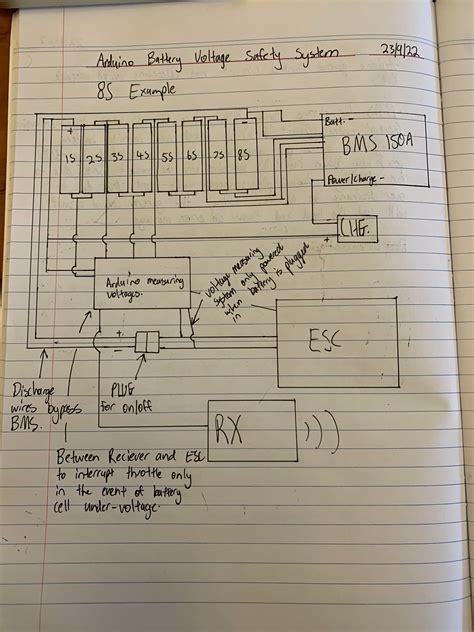 Arduino Battery Voltage Safety System 23/9/22
8S Example
+
1S 2S 3S 4S 5S 6S 7S 8S
Batt. -
BMS 150A
Power/charge -
CHG.
+
Arduino measuring
voltages.
voltage measuring
system only powered
when battery is plugged
in
+ -
ESC
Discharge
wires bypass
BMS.
PLUG
for on/off
RX
Between Reciever and ESC
to interrupt throttle only
in the event of battery
cell under-voltage.